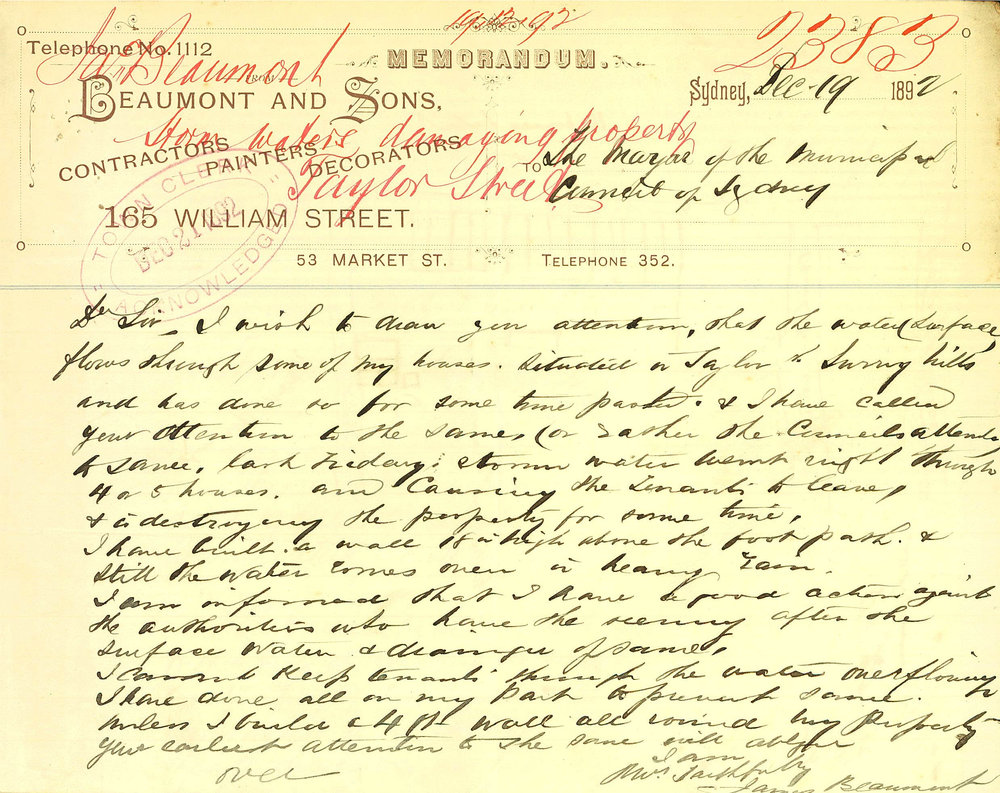 19.12.92
2383
Telephone No. 1112
Js Beaumont
MEMORANDUM.
FROM
BEAUMONT AND SONS,
Sydney, Dec 19 1892
Storm waters damaging property
Taylor Street
CONTRACTORS PAINTERS DECORATORS
TO The Mayor of the Municipal
Council of Sydney
165 WILLIAM STREET.
TOWN CLERK
DEC 21 1892
ACKNOWLEDGED
53 MARKET ST. TELEPHONE 352.
Dr Sir, I wish to draw your attention, that the water (surface)
flows through some of my houses. situated in Taylor St Surry hills
and has done so for some time past. & I have called
your attention to the same, (or rather the Councils attention
to same, last Friday. storm water went right through
4 or 5 houses. and causing the tenants to leave,
& is destroying the property for some time,
I have built a wall 18 in high above the foot path. &
still the water comes over in heavy rain.
I am informed that I have a good action against
the authorities who have the seeing after the
surface water & drainage of same,
I cannot keep tenants through the water overflowing
I have done all on my part to prevent same.
unless I build a 4 ft wall all round my property
your earliest attention to the same will oblige
I am
over
Yrs Faithfully
James Beaumont